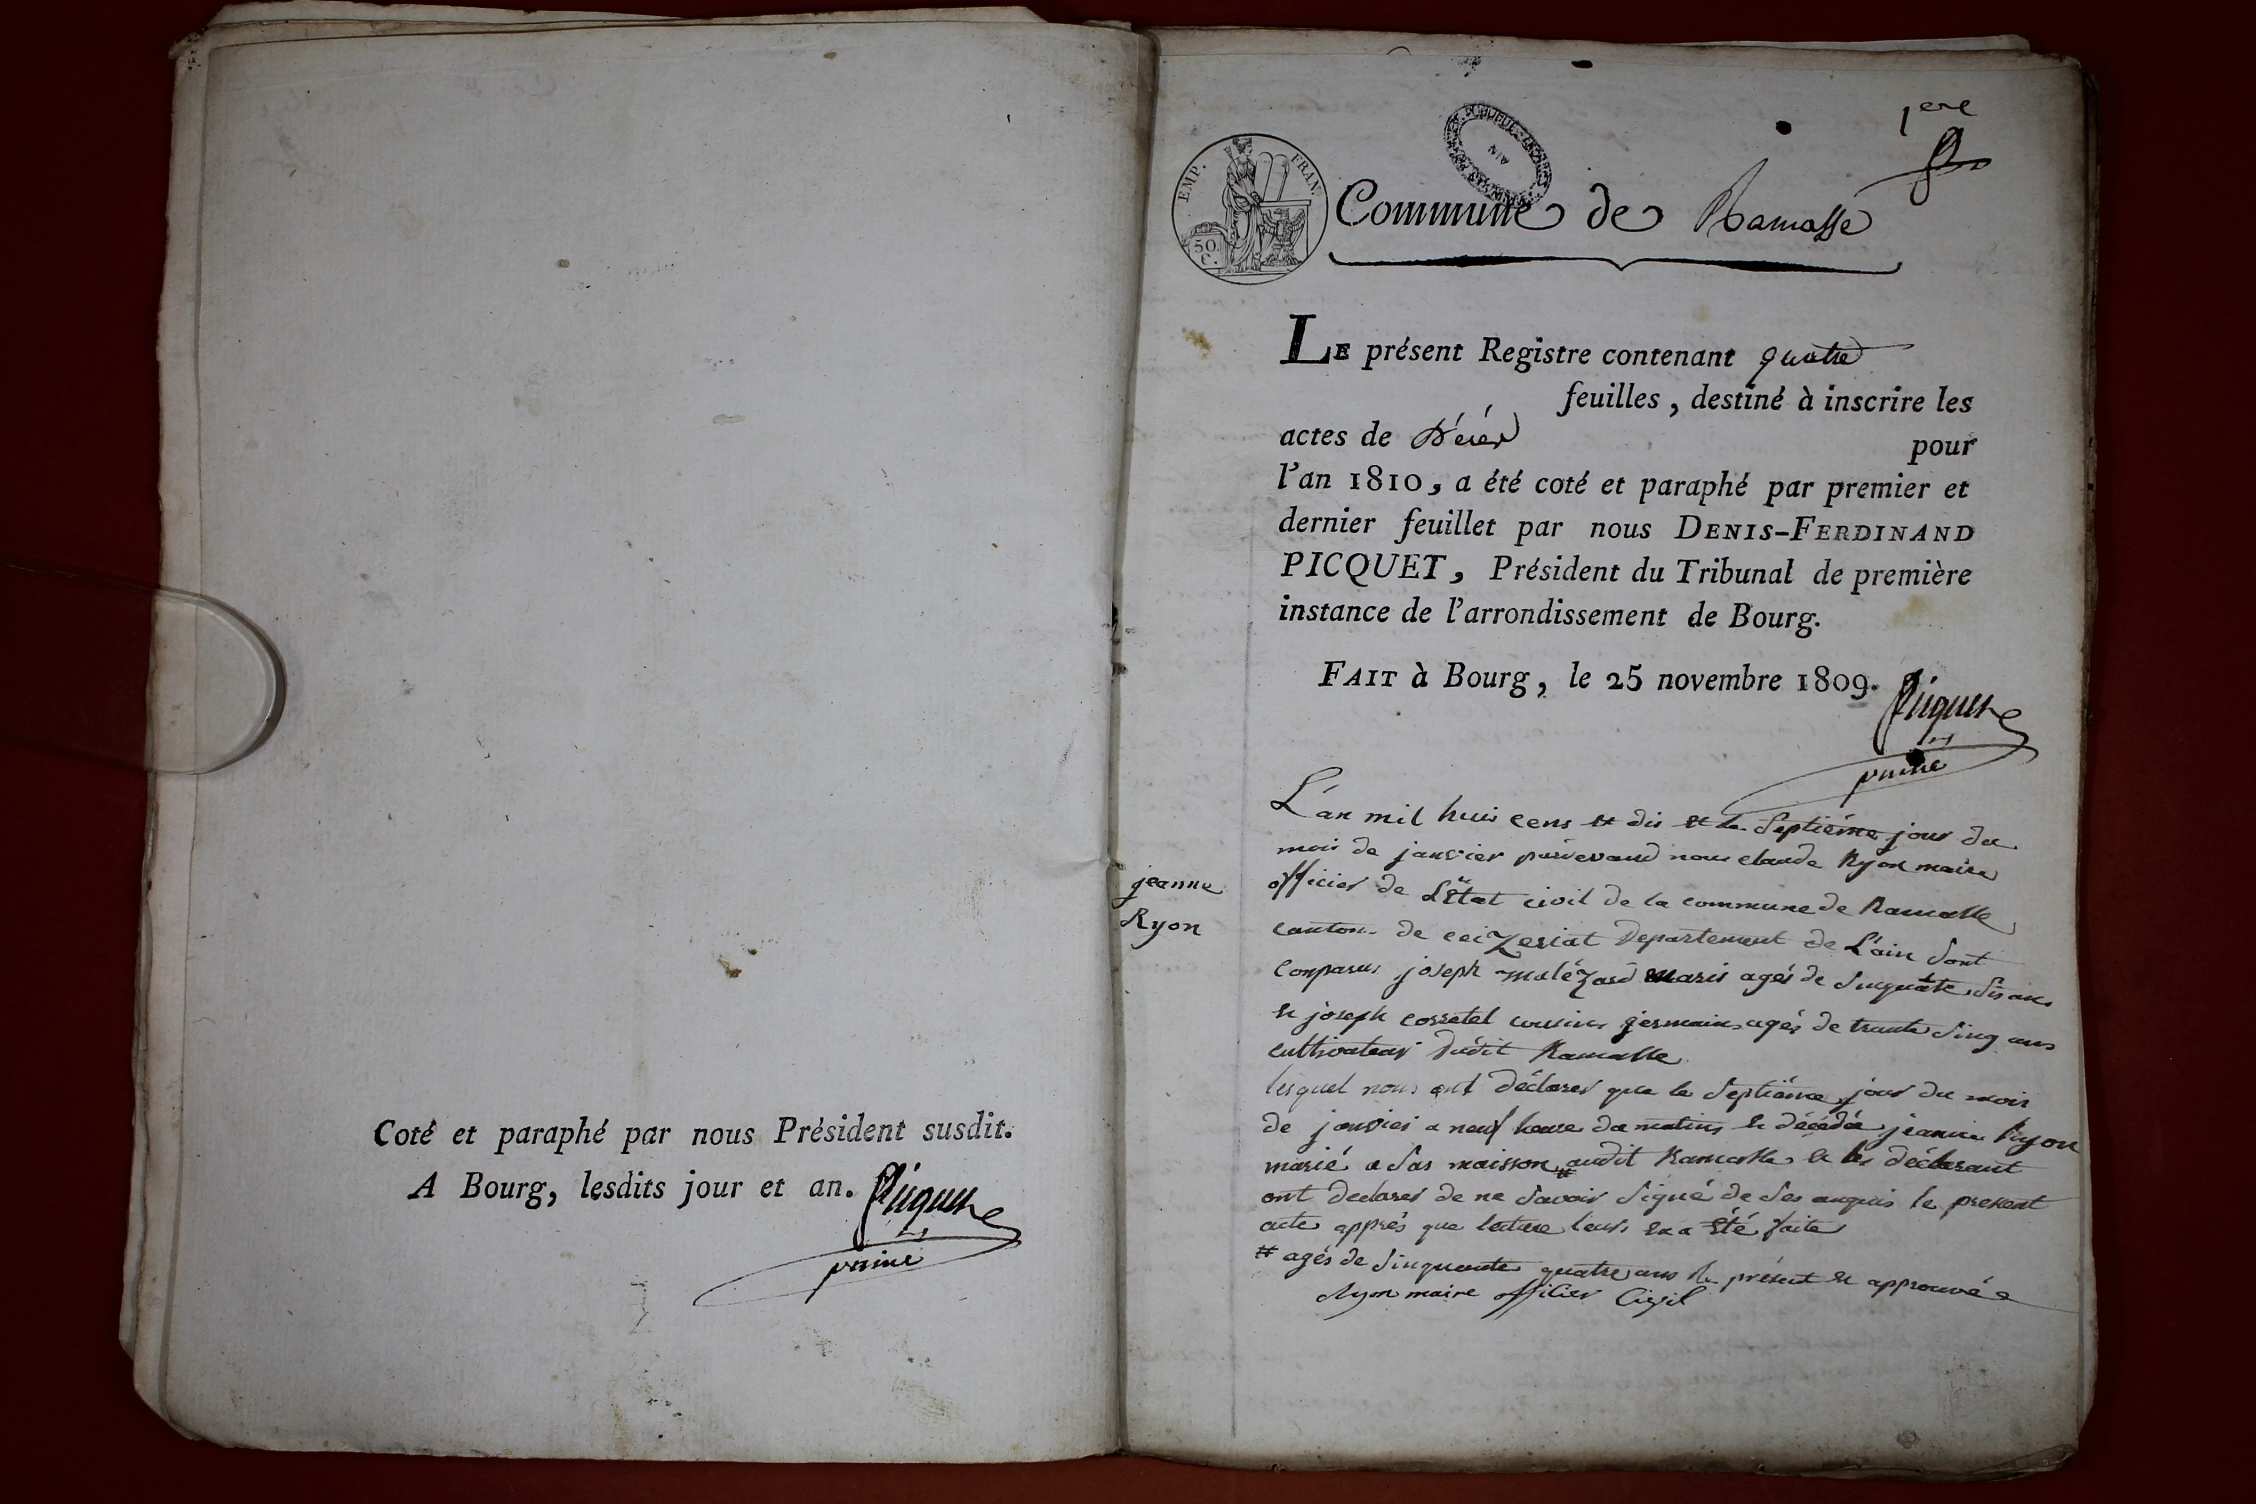 Coté et paraphé par nous Président susdit.
A Bourg, lesdits jour et an. Picquet
1ere
EMP. FRAN.
50 C.
AIN
Commune de Ramasse
LE présent Registre contenant quatre
feuilles, destiné à inscrire les
actes de Décès pour
l'an 1810, a été coté et paraphé par premier et
dernier feuillet par nous DENIS-FERDINAND
PICQUET, Président du Tribunal de première
instance de l'arrondissement de Bourg.
FAIT à Bourg, le 25 novembre 1809. Picquet
jeanne
Ryon
L'an mil huit cens et dis et le Septiéme jour du
mois de janvier pardevand nous claude Ryon maire
officier de L'Etat civil de la commune de Ramasse
canton de ceiZeriat Departement de L'ain Sont
conparus joseph maléZard maris agés de Sinquante Sis ans
et joseph corretel cousins germains agés de trante Sinq ans
cultivateur dudit Ramasse
lesquel nous ont déclarer que le Septiéme jour du mois
de janvier a neuf heure du matins et décédée jeanne Ryon
marié a Sas maisson # audit Ramasse et les déclarant
ont declarer de ne Savoir Signé de Ses anquis le present
acte apprés que lecture leurs en a Eté faite
# agés de Sinquante quatre ans le présent et approuvée
Ryon maire officier Civil